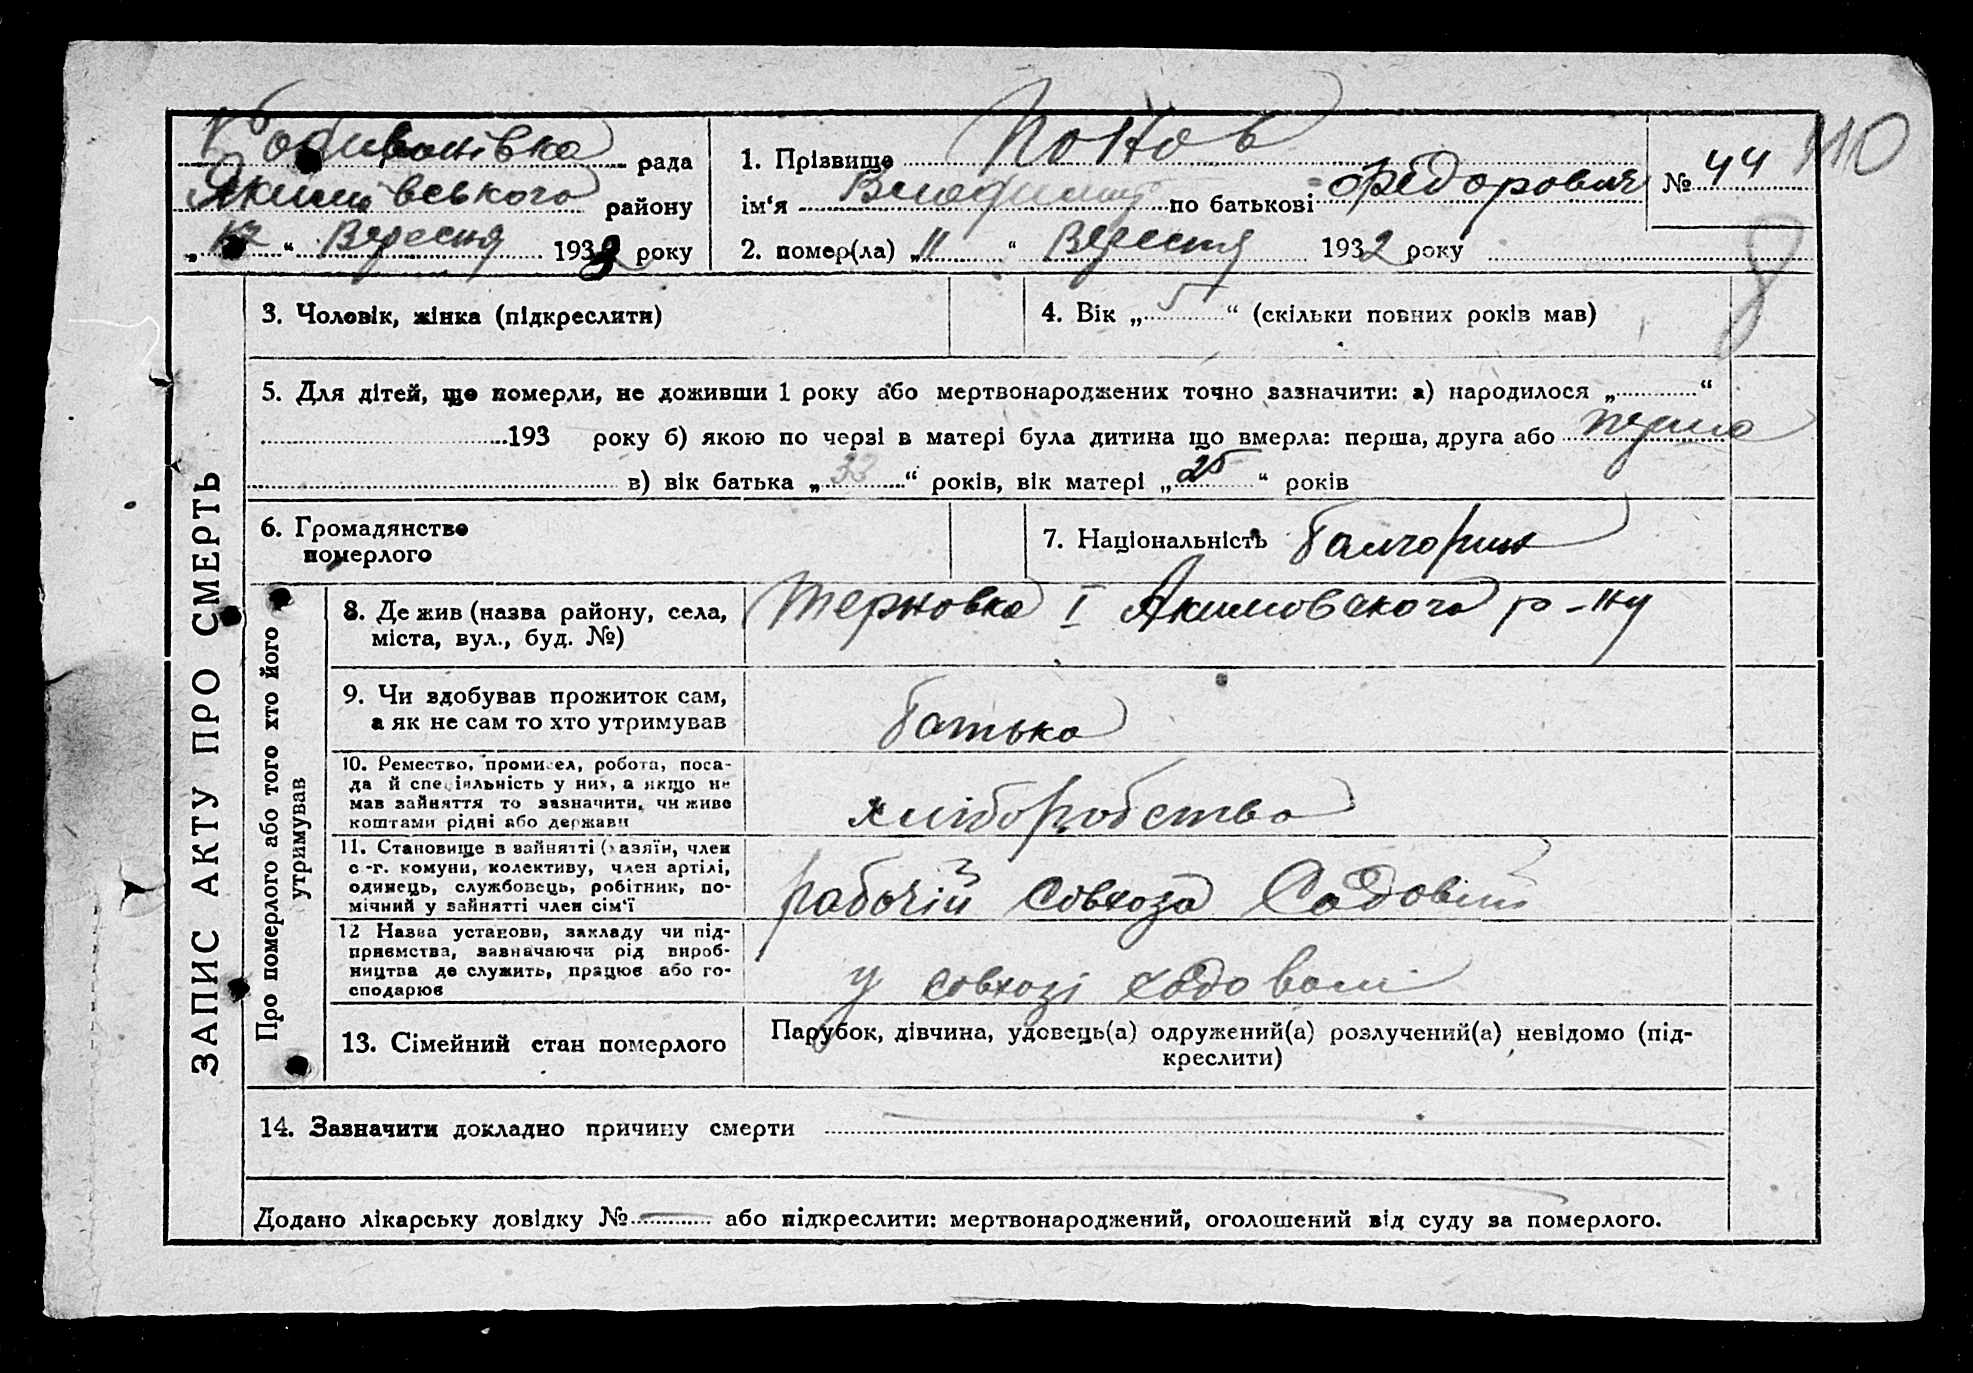 Родивонівка рада
Якимівського району
„12“ Вересня 1932 року
1. Прізвище Попов
ім'я Владимир по батькові Федорович
№ 44
110
2. помер(ла) „11“ Вересня 1932 року
8
3. Чоловік, жінка (підкреслити)
4. Вік „5“ (скільки повних років мав)
5. Для дітей, що померли, не доживши 1 року або мертвонароджених точно зазначити: а) народилося „ “
193 року б) якою по черзі в матері була дитина що вмерла: перша, друга або перша
в) вік батька „33“ років, вік матері „25“ років
6. Громадянство
померлого
7. Національність Балгорин
ЗАПИС АКТУ ПРО СМЕРТЬ
Про померлого або того хто його
утримував
8. Де жив (назва району, села,
міста, вул., буд. №)
Терновка I Акимовского р-ну
9. Чи здобував прожиток сам,
а як не сам то хто утримував
батько
10. Ремество, промисел, робота, поса-
да й спеціяльність у них, а якщо не
мав зайняття то зазначити, чи живе
коштами рідні або держави
хліборобство
11. Становище в зайнятті (хазяїн, член
с.-г. комуни, колективу, член артілі,
одинець, службовець, робітник, по-
мічний у зайнятті член сім'ї
рабочій совхоза Садовій
12 Назва установи, закладу чи під-
приємства, зазначаючи рід вироб-
ництва де служить, працює або го-
сподарює
у совхозі садовом
13. Сімейний стан померлого
Парубок, дівчина, удовець(а) одружений(а) розлучений(а) невідомо (під-
креслити)
14. Зазначити докладно причину смерти
Додано лікарську довідку № або підкреслити: мертвонароджений, оголошений від суду за померлого.